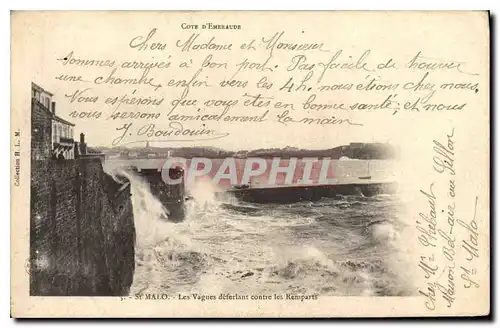 COTE D'EMERAUDE
Chers Madame et Monsieur
Sommes arrivés à bon port. Pas facile de trouver
une chambre, enfin vers les 4h, nous étions chez nous,
Nous espérons que vous êtes en bonne santé, et nous
vous serrons amicalement la main
J. Baudouin
Collection H. L. M.
CPAPHIL
5. - St MALO. - Les Vagues déferlant contre les Remparts
chez Mr Thébaut
Maison Bel-air au Sillon
St Malo